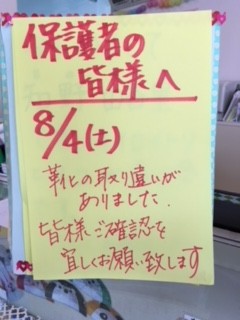 保護者の
皆様へ
8/4(土)
革化の取り違いが
ありました.
皆様ご確認を
宜しくお願い致します